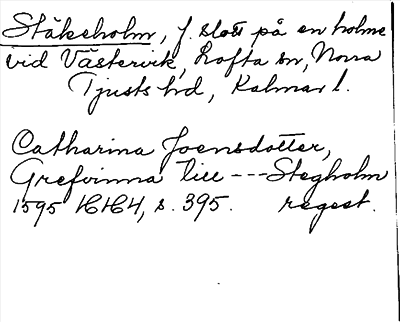 Stäkeholm, f. slott på en holme
vid Västervik, Lofta sn, Norra
Tjusts hd, Kalmar l.
Catharina Joensdotter,
Grefvinna till --- Stegholm
1595 HH4, s. 395. regest.